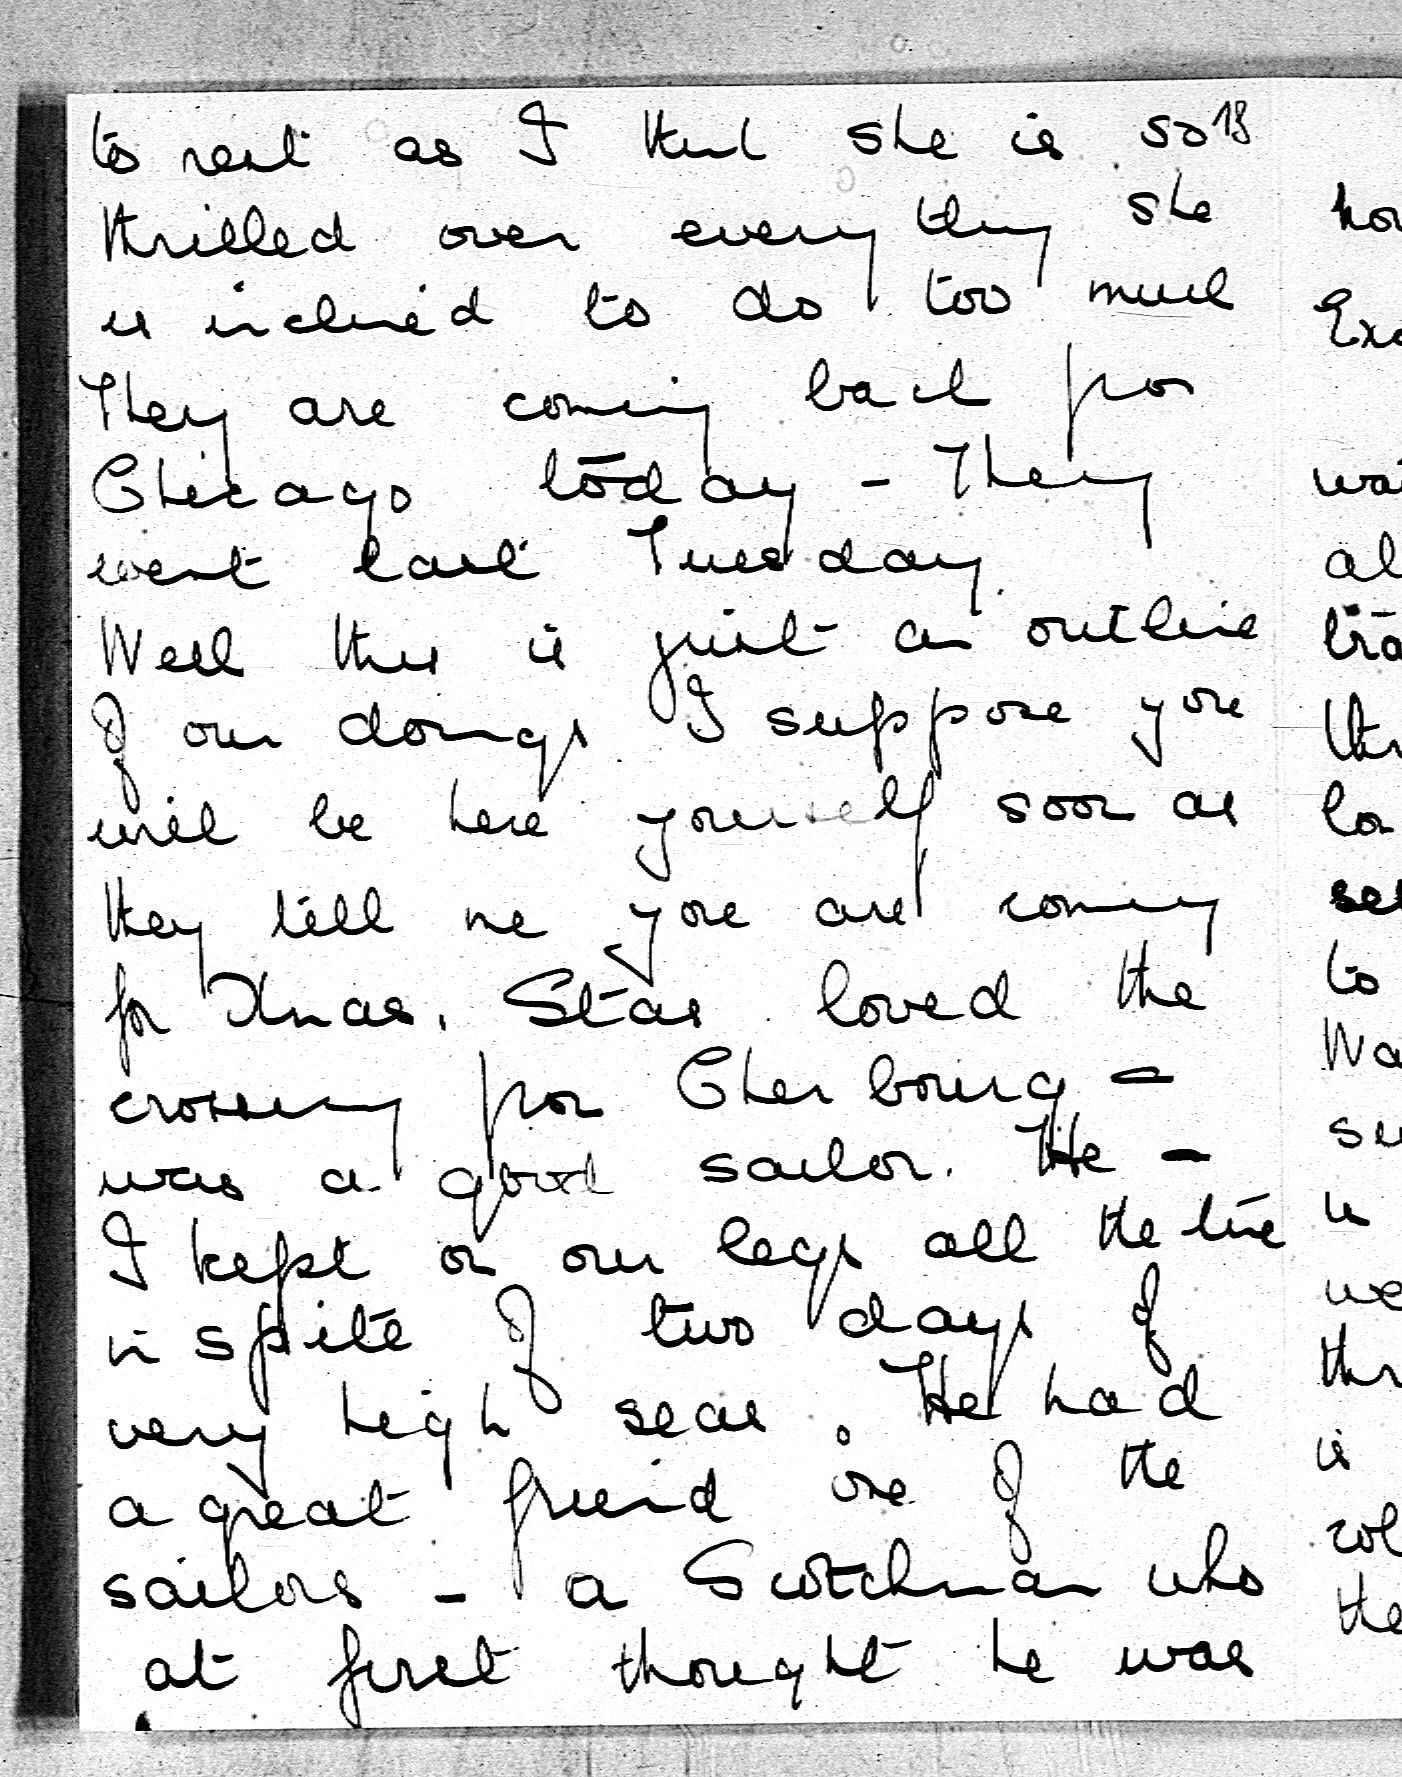 to rest as I think she is so 18
thrilled over everything she
is inclined to do too much
They are coming back from
Chicago today - They
went last Tuesday.
Well this is just an outline
of our doings I suppose you
will be here yourself soon as
they tell me you are coming
for Xmas. Stas loved the
crossing from Cherbourg -
was a good sailor. He -
I kept on our legs all the time
in spite of two days of
very high seas. He had
a great friend one of the
sailors - a Scotchman who
at first thought he was